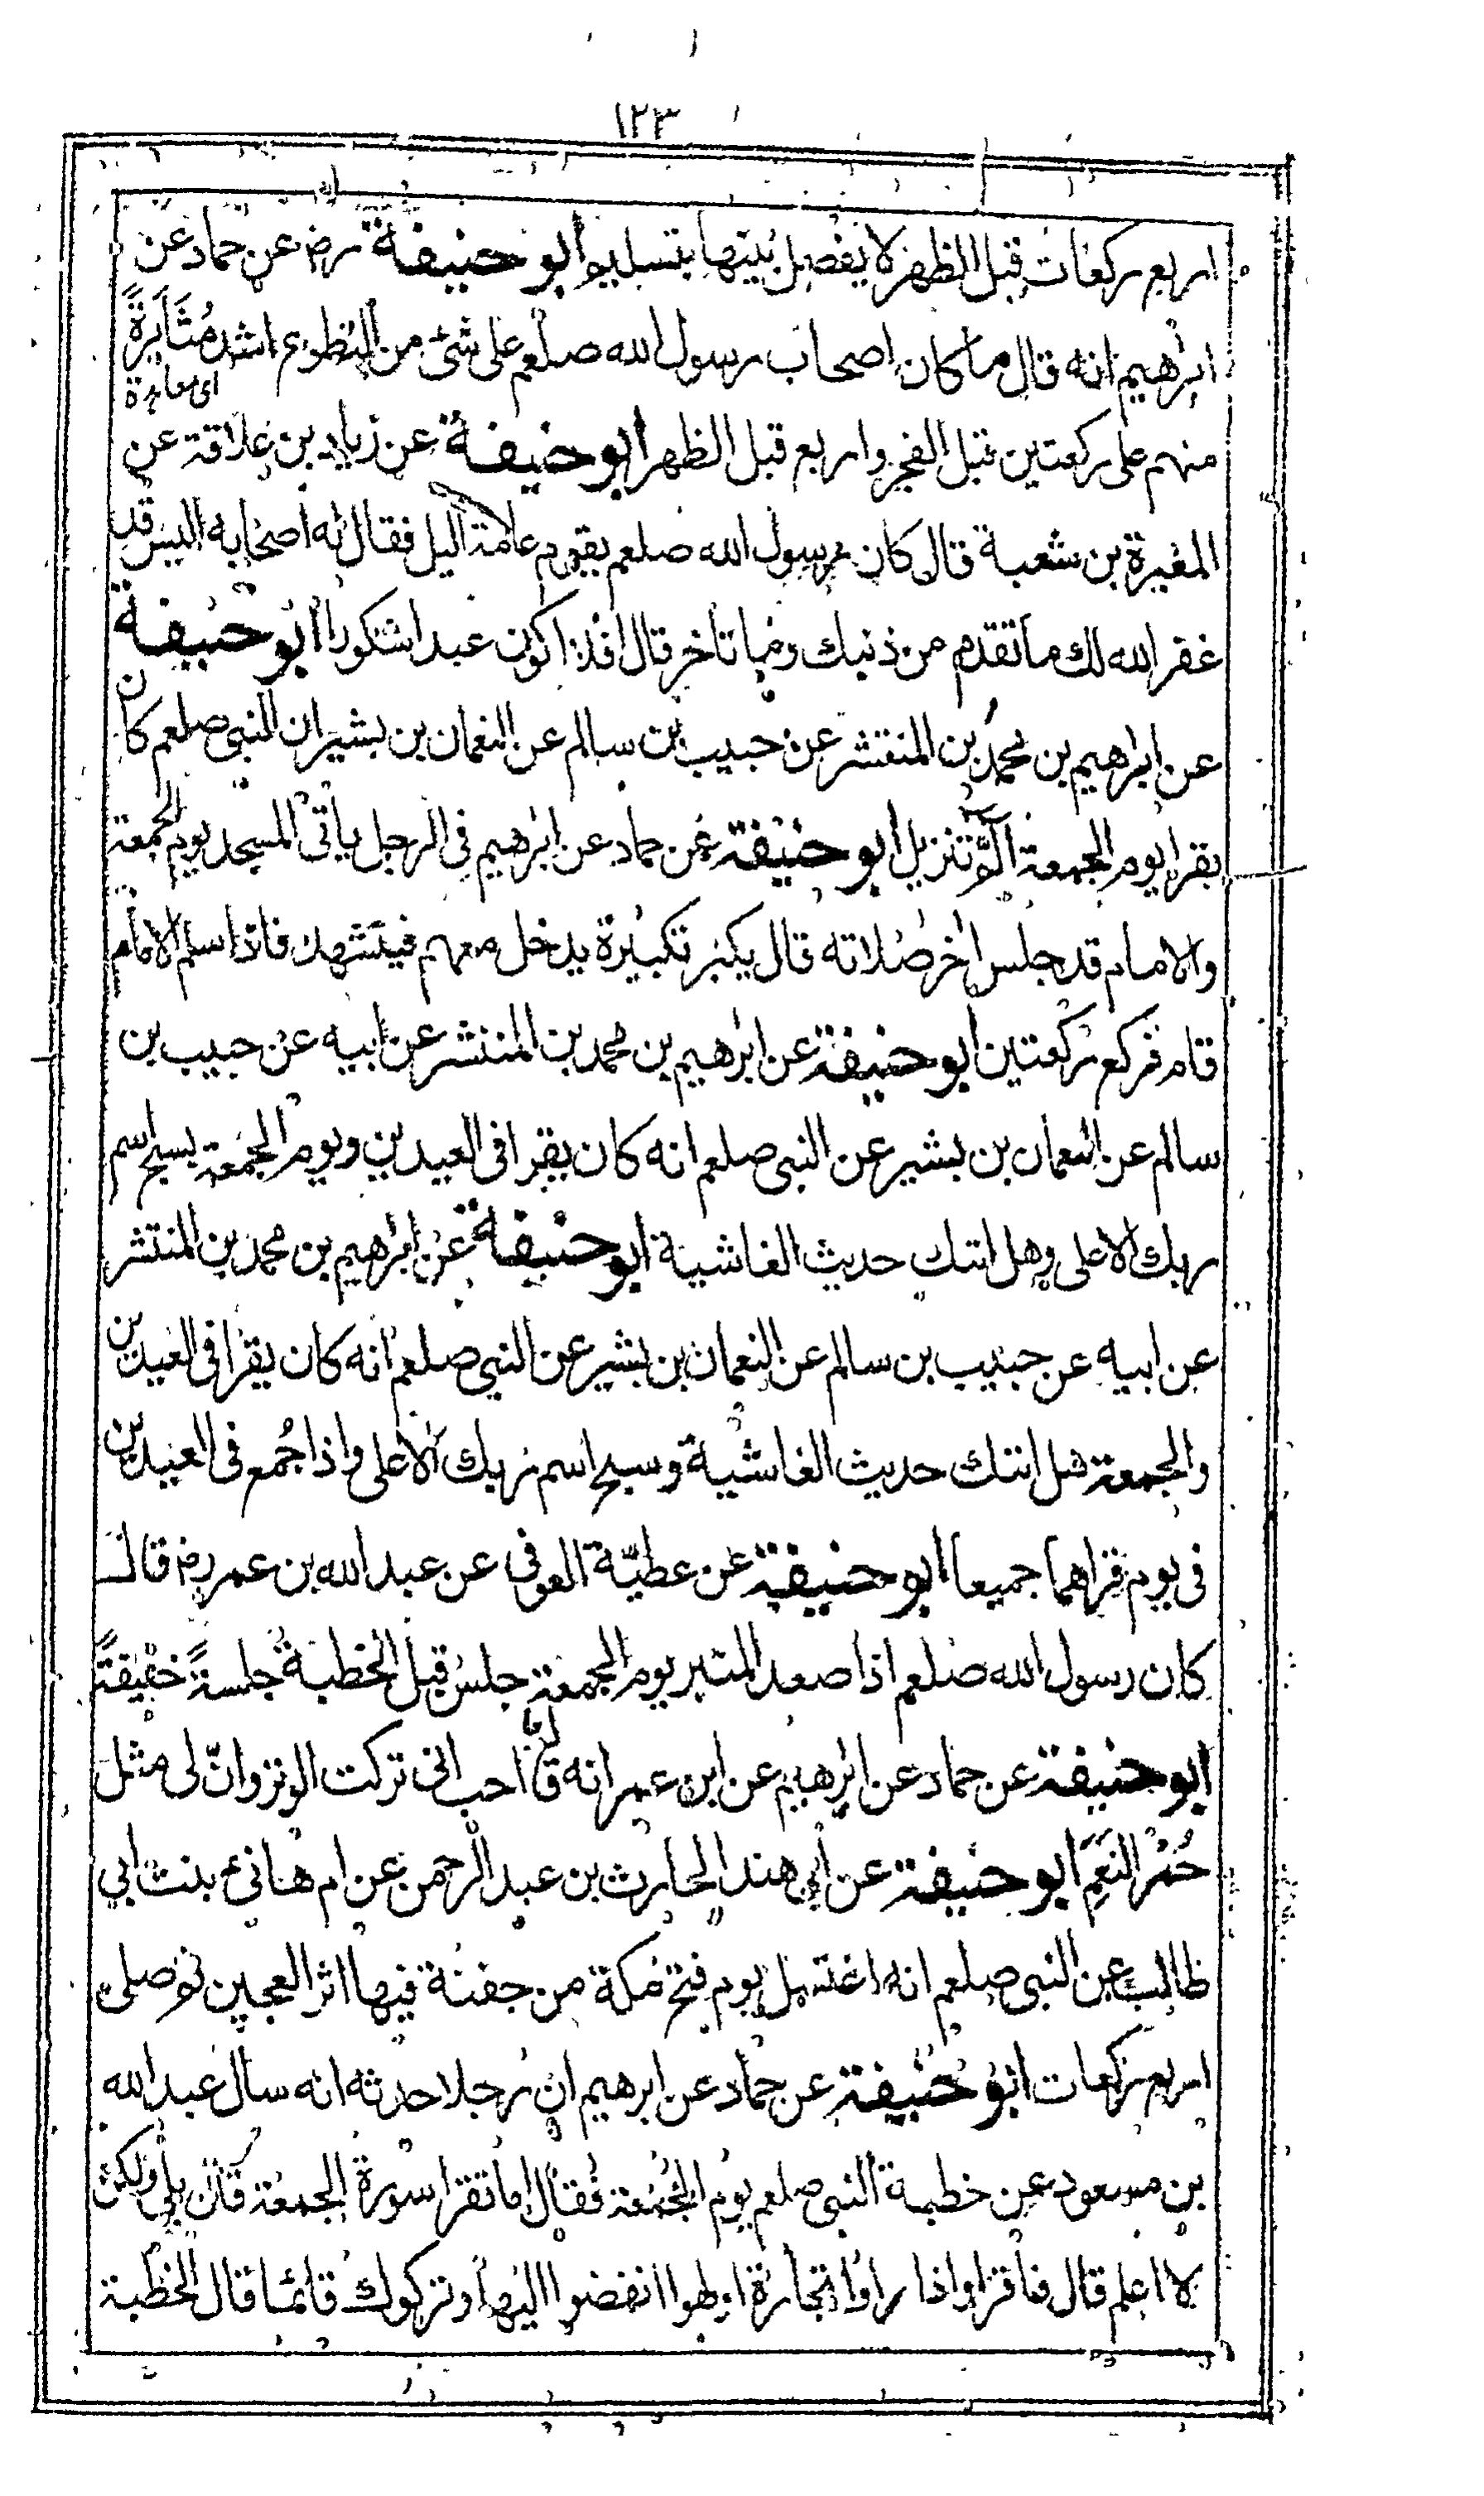 ١٢٣
اربع ركعات قبل الظهر لا يفصل بينها بتسليم ابو حنيفة رض عن حماد عن
ابرهيم انه قال ما كان اصحاب رسول الله صلعم على شئ من التطوع اشد مُثَابَرةً
منهم على ركعتين قبل الفجر واربع قبل الظهر ابو حنيفة عن زياد بن علاقة عن
المغيرة بن شعبة قال كان رسول الله صلعم يقوم عامة اليل فقال له اصحابه اليس قد
غفر الله لك ما تقدم من ذنبك وما تاخر قال افلا اكون عبدا شكورا ابو حنيفة
عن ابرهيم بن محمد بن المنتشر عن حبيب بن سالم عن النعمان بن بشير ان النبى صلعم كان
يقرا يوم الجمعة الٓمّٓ تنزيل ابو حنيفة عن حماد عن ابرهيم فى الرجل ياتى المسجد يوم الجمعة
والامام قد جلس اخر صلاته قال يكبر تكبيرة يدخل معهم فيتشهد فاذا سلم الامام
قام فركع ركعتين ابو حنيفة عن ابرهيم بن محمد بن المنتشر عن ابيه عن حبيب بن
سالم عن النعمان بن بشير عن النبى صلعم انه كان يقرا فى العيدين ويوم الجمعة بسبح اسم
ربك الاعلى وهل اتتك حديث الغاشية ابو حنيفة عن ابرهيم بن محمد بن المنتشر
عن ابيه عن حبيب بن سالم عن النعمان بن بشير عن النبى صلعم انه كان يقرا فى العيدين
والجمعة هل اتتك حديث الغاشية وسبح اسم ربك الاعلى واذا جُمع فى العيدين
فى يوم قراهما جميعا ابو حنيفة عن عطيّة العوفى عن عبد الله بن عمر رض قال
كان رسول الله صلعم اذا صعد المنبر يوم الجمعة جلس قبل الخطبة جلسةً خفيفةً
ابو حنيفة عن حماد عن ابرهيم عن ابن عمر انه قال ما احب انى تركت الوتر وانّ لى مثل
حُمْر النَعَمِ ابو حنيفة عن أبى هند الحارث بن عبد الرحمن عن ام هانئ بنت ابي
طالب عن النبى صلعم انه اغتسل يوم فتح مكة من جفنة فيها اثر العجين ثم صلى
اربع ركعات ابو حنيفة عن حماد عن ابرهيم ان رجلا حدثه انه سال عبد الله
بن مسعود عن خطبة النبى صلعم يوم الجمعة فقال اما تقرا سورة الجمعة قال بلى ولكن
لا اعلم قال فاقرا واذا راوا تجارة او لهوا انفضوا اليها وتركوك قائما قال الخطبة